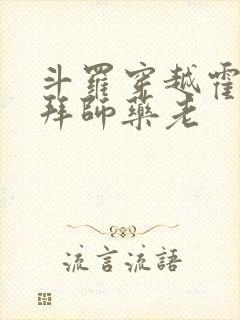 斗羅穿越霍
拜師藥老
流言流語